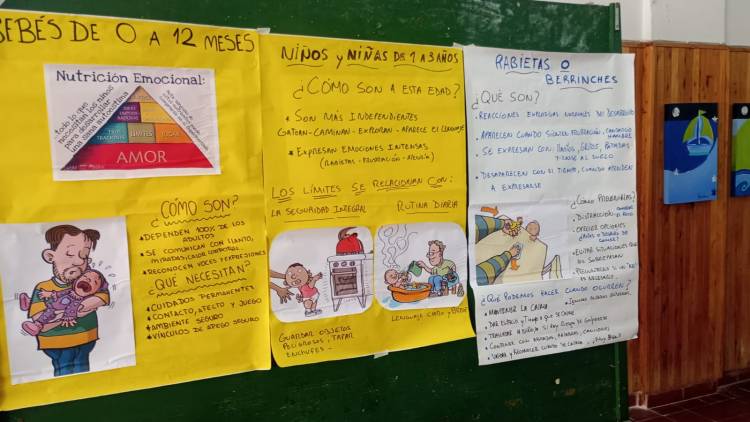 BEBÉS DE 0 A 12 MESES
Nutrición Emocional:
todo lo que
necesitan los niños
para desarrollar
una sana autoestima
LÍMITES
JUGAR
AMOR
¿CÓMO SON?
* DEPENDEN 100% DE LOS
ADULTOS
* SE COMUNICAN CON LLANTO,
MIRADAS, CALOR CORPORAL.
* RECONOCEN VOCES Y EXPRESIONES
¿QUÉ NECESITAN?
* CUIDADOS PERMANENTES
* CONTACTO, AFECTO Y JUEGO
* AMBIENTE SEGURO
* VÍNCULOS DE APEGO SEGURO
NIÑOS y NIÑAS DE 1 A 3 AÑOS
¿CÓMO SON A ESTA EDAD?
* SON MÁS INDEPENDIENTES
GATEAN - CAMINAN - EXPLORAN - APARECE EL LENGUAJE
* EXPRESAN EMOCIONES INTENSAS
(RABIETAS - FRUSTRACIÓN - ALEGRÍA)
LOS LÍMITES SE RELACIONAN CON:
LA SEGURIDAD INTEGRAL
RUTINA DIARIA
GUARDAR OBJETOS
PELIGROSOS, TAPAR
ENCHUFES..
LENGUAJE CLARO y BREVE
RABIETAS O
BERRINCHES
¿QUÉ SON?
• REACCIONES EXPLOSIVAS NORMALES DEL DESARROLLO
• APARECEN CUANDO SIENTEN FRUSTRACIÓN, CANSANCIO
HAMBRE
• SE EXPRESAN CON LLANTOS, GRITOS, PATADAS
TIRARSE AL SUELO
• DESAPARECEN CON EL TIEMPO, CUANDO APRENDEN
A EXPRESARSE
¿CÓMO PREVENIRLAS?
• DISTRACCIÓN:
• OFRECER OPCIONES
• EVITAR SITUACIONES QUE
LOS SOBREPASAN
• PREGUNTARSE SI UN "NO"
ES NECESARIO
¿QUÉ PODEMOS HACER CUANDO OCURREN?
• MANTENER LA CALMA
• DAR ESPACIO y TIEMPO A QUE SE CALME